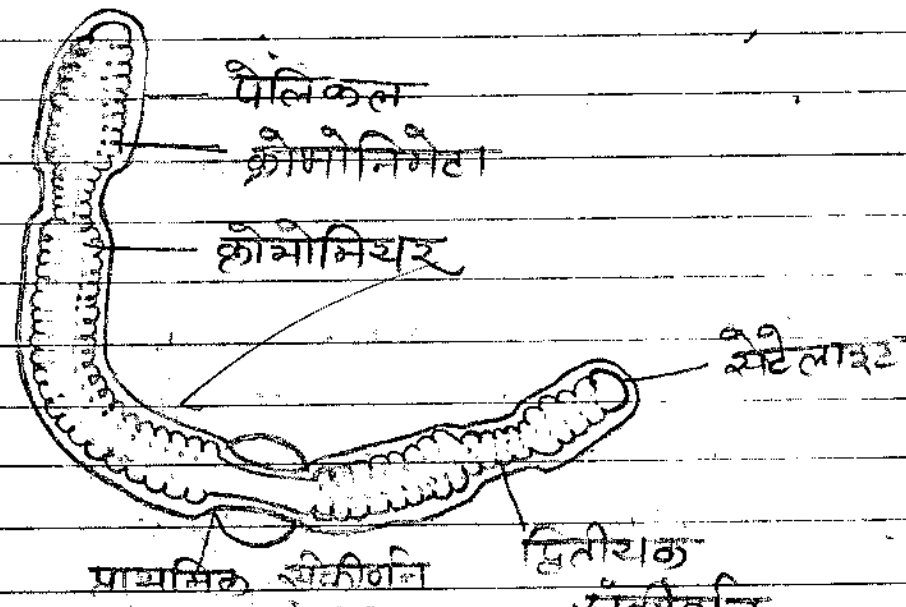 पेलिकल
क्रोमोनिमेटा
क्रोमोमियर
सेटेलाइट
प्राथमिक संकीर्णन
द्वितीयक
संकीर्णन